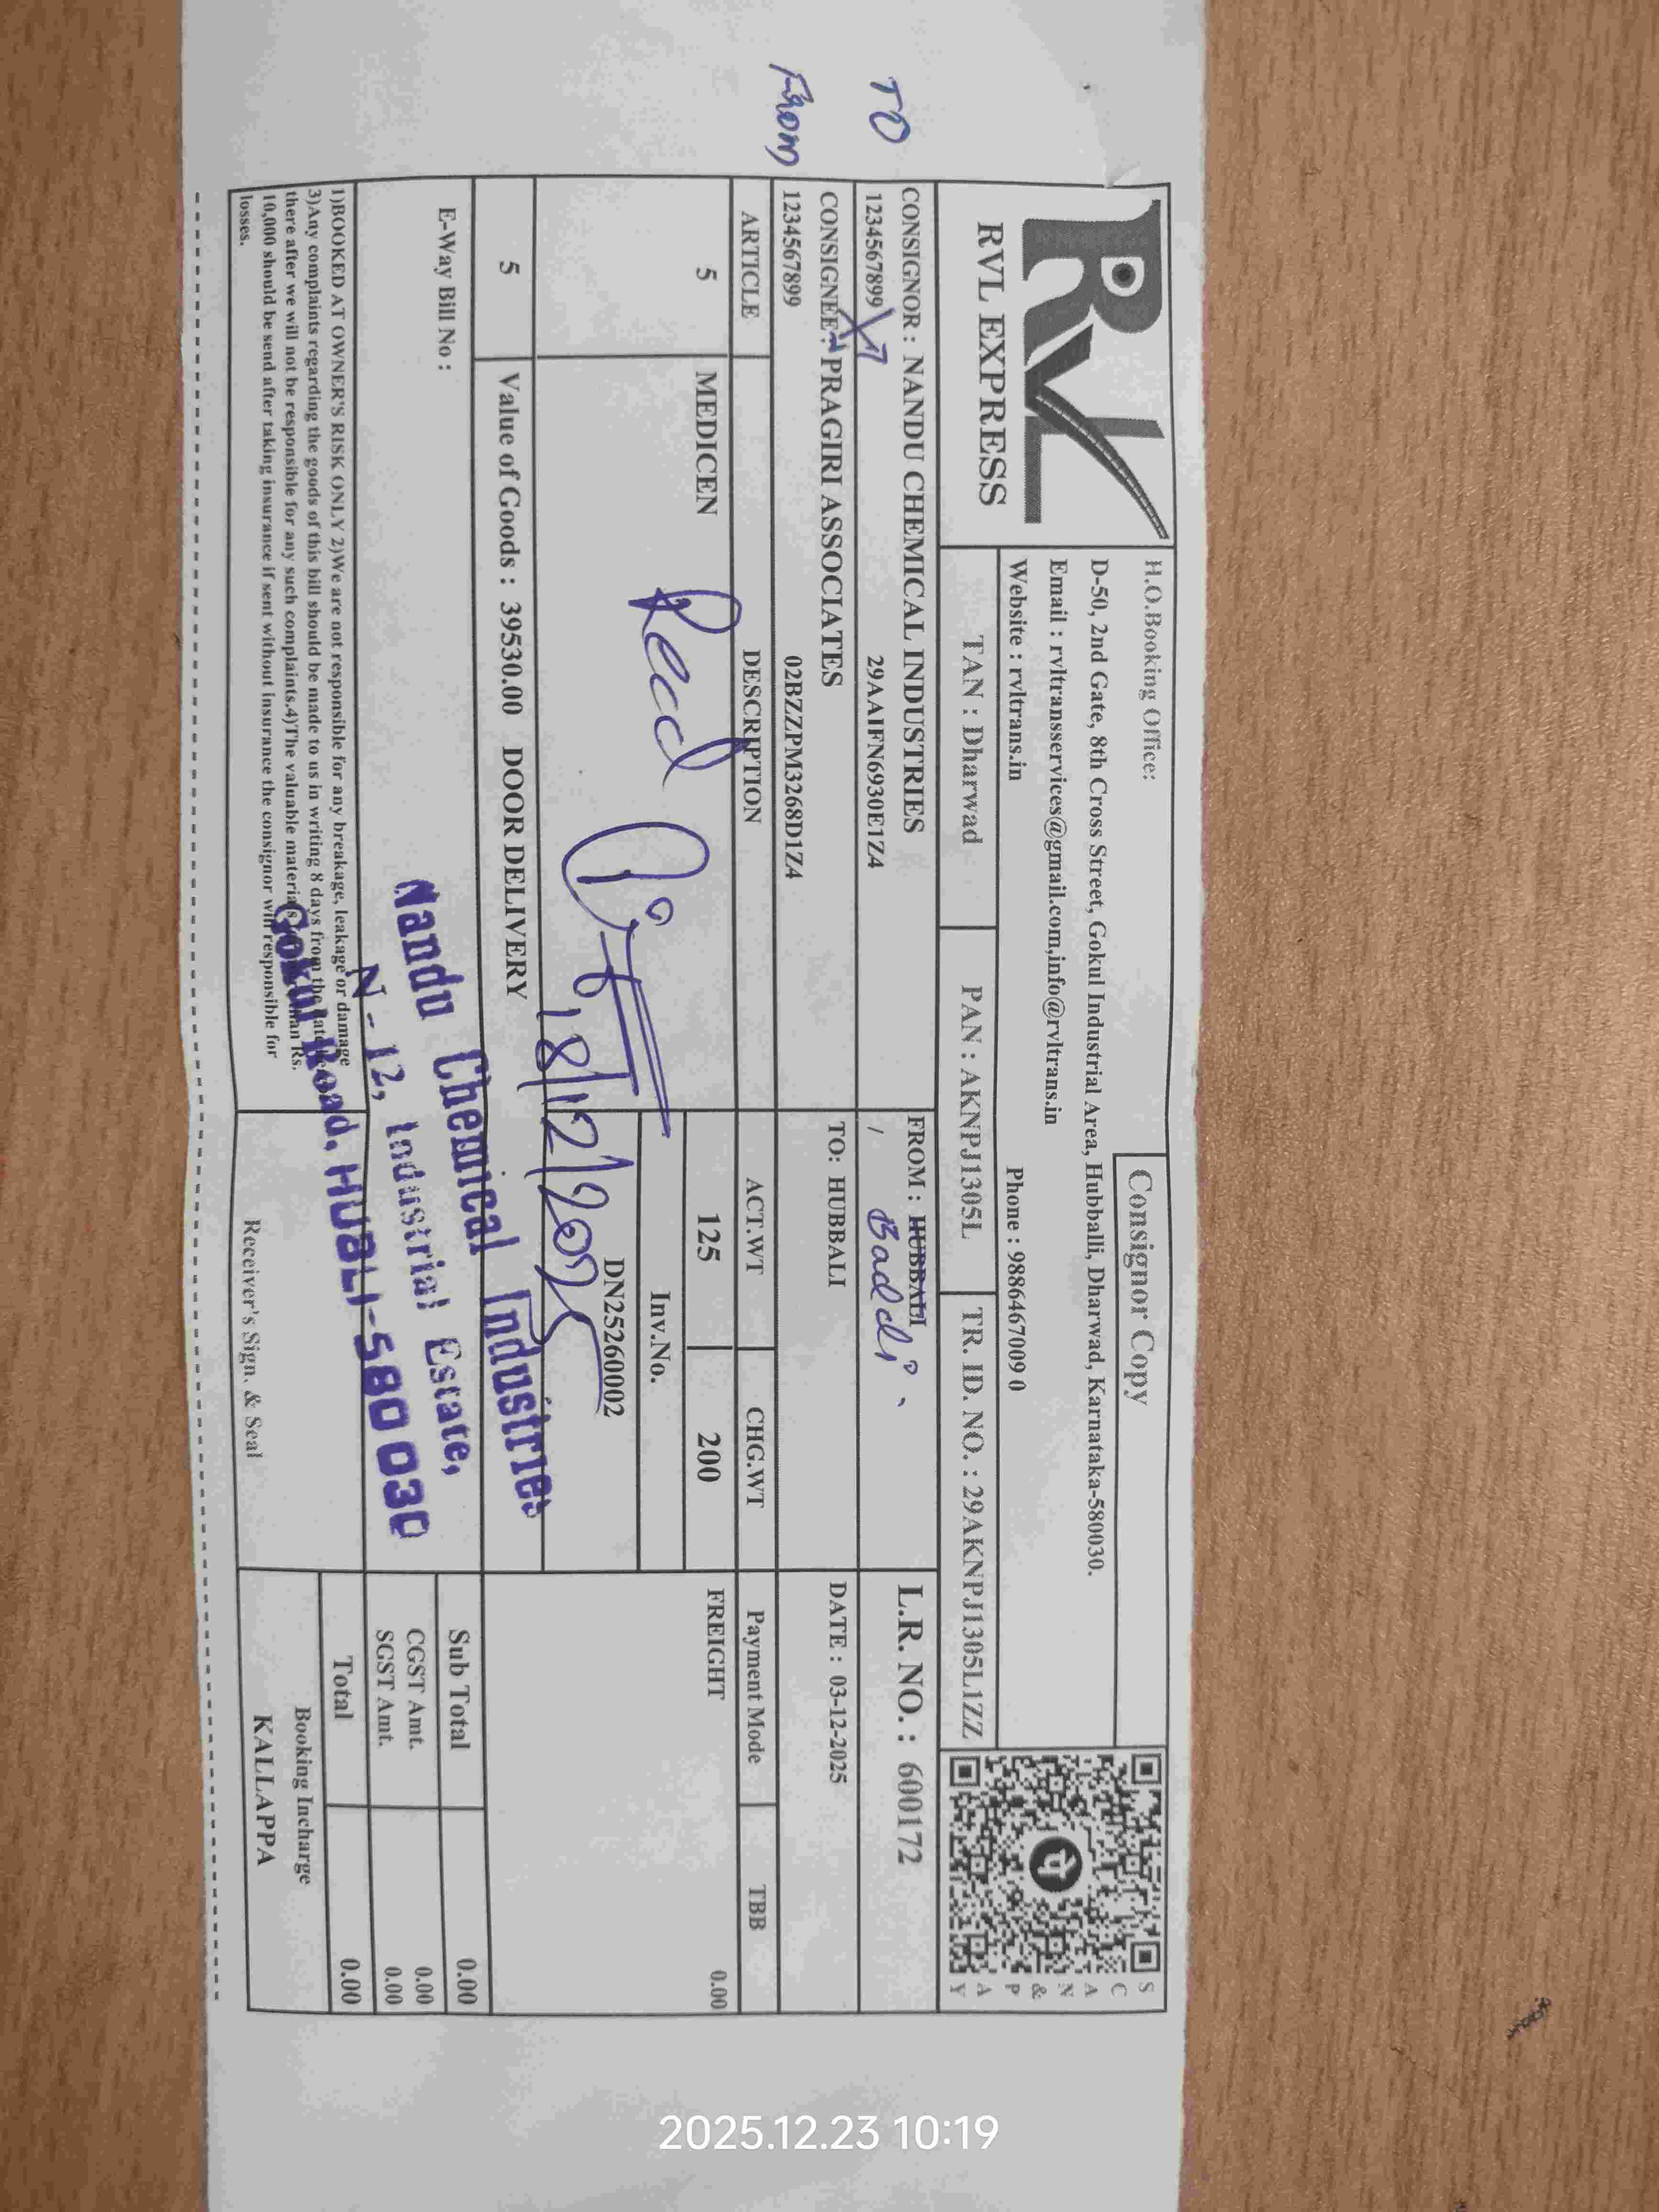 TO
From
RVL EXPRESS
H.O.Booking Office:
Consignor Copy
D-50, 2nd Gate, 8th Cross Street, Gokul Industrial Area, Hubballi, Dharwad, Karnataka-580030.
Email : rvltransservices@gmail.com,info@rvltrans.in
Website : rvltrans.in Phone : 9886467009 0
SCAN & PAY
TAN : Dharwad PAN : AKNPJ1305L TR. ID. NO. : 29AKNPJ1305L1ZZ
CONSIGNOR : NANDU CHEMICAL INDUSTRIES FROM : HUBBALI L.R. NO. : 600172
1234567899 29AAIFN6930E1Z4 / Baddi
CONSIGNEE : PRAGIRI ASSOCIATES TO: HUBBALI DATE : 03-12-2025
1234567899 02BZZPM3268D1Z4
ARTICLE DESCRIPTION ACT.WT CHG.WT Payment Mode TBB
5 MEDICEN 125 200 FREIGHT 0.00
Recd
Inv.No.
DN25260002
18/12/2025
5 Value of Goods : 39530.00 DOOR DELIVERY
Sub Total 0.00
E-Way Bill No :
CGST Amt. 0.00
SGST Amt. 0.00
Total 0.00
Nandu Chemical Industries
N - 12, Industrial Estate,
Gokul Road, HUBLI-580 030
1)BOOKED AT OWNER'S RISK ONLY 2)We are not responsible for any breakage, leakage or damage
3)Any complaints regarding the goods of this bill should be made to us in writing 8 days from the date
there after we will not be responsible for any such complaints.4)The valuable materials than Rs.
10,000 should be send after taking insurance if sent without insurance the consignor will responsible for
losses.
Receiver's Sign. & Seal
Booking Incharge
KALLAPPA
2025.12.23 10:19